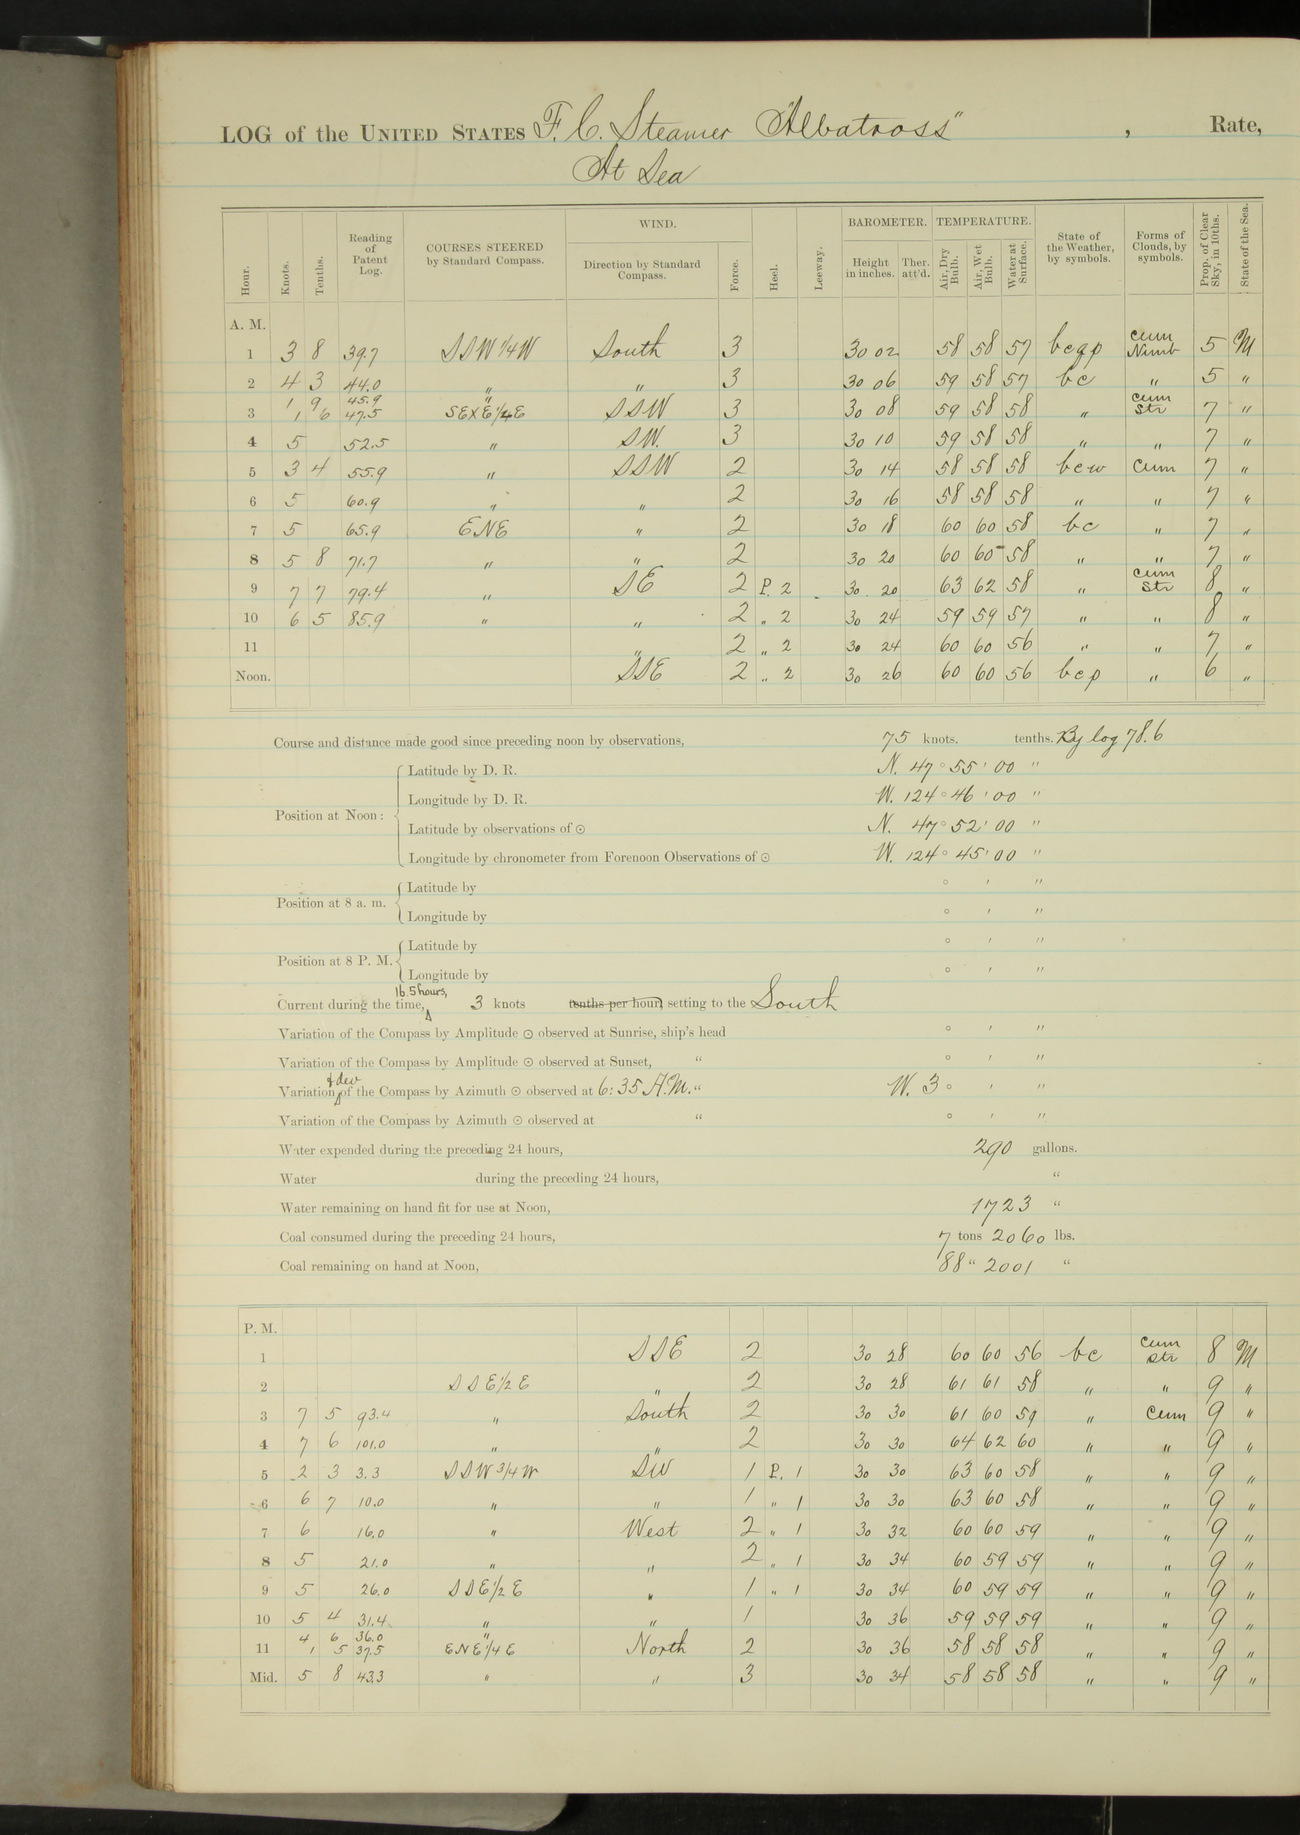 LOG of the UNITED STATES F. C. Steamer "Albatross" , Rate,
At Sea
Hour. Knots. Tenths. Reading of Patent Log. COURSES STEERED by Standard Compass. WIND. Direction by Standard Compass. Force. Heel. Leeway. BAROMETER. Height in inches. Ther. att'd. TEMPERATURE. Air, Dry Bulb. Air, Wet Bulb. Water at Surface. State of the Weather, by symbols. Forms of Clouds, by symbols. Prop. of Clear Sky, in 10ths. State of the Sea.
A. M.
1 3 8 39.7 SSW 1/4 W South 3 30 02 58 58 57 bcqp cum Nimb 5 M
2 4 3 44.0 " " 3 30 06 59 58 57 bc " 5 "
1 9 45.9 "
3 1 6 47.5 SExE 1/4 E SSW 3 30 08 59 58 58 " cum Str 7 "
4 5 52.5 " SW. 3 30 10 59 58 58 " " 7 "
5 3 4 55.9 " SSW 2 30 14 58 58 58 bcw Cum 7 "
6 5 60.9 " " 2 30 16 58 58 58 " " 7 "
7 5 65.9 ENE " 2 30 18 60 60 58 bc " 7 "
8 5 8 71.7 " " 2 30 20 60 60 58 " " 7 "
9 7 7 79.4 " SE 2 P. 2 30 20 63 62 58 " cum Str 8 "
10 6 5 85.9 " " 2 " 2 30 24 59 59 57 " " 8 "
11 " 2 " 2 30 24 60 60 56 " " 7 "
Noon. SSE 2 " 2 30 26 60 60 56 bcp " 6 "
Course and distance made good since preceding noon by observations, 75 knots. tenths. By log 78.6
Position at Noon:
Latitude by D. R. N. 47° 55' 00"
Longitude by D. R. W. 124° 46' 00"
Latitude by observations of ☉ N. 47° 52' 00"
Longitude by chronometer from Forenoon Observations of ☉ W. 124° 45' 00"
Position at 8 a. m.
Latitude by ° ' "
Longitude by ° ' "
Position at 8 P. M.
Latitude by ° ' "
Longitude by ° ' "
Current during the time, 16.5 hours, 3 knots tenths per hour, setting to the South
Variation of the Compass by Amplitude ☉ observed at Sunrise, ship's head ° ' "
Variation of the Compass by Amplitude ☉ observed at Sunset, " ° ' "
Variation & dev of the Compass by Azimuth ☉ observed at 6:35 A.M. " W. 3 ° ' "
Variation of the Compass by Azimuth ☉ observed at " ° ' "
Water expended during the preceding 24 hours, 290 gallons.
Water during the preceding 24 hours, "
Water remaining on hand fit for use at Noon, 1723 "
Coal consumed during the preceding 24 hours, 7 tons 2060 lbs.
Coal remaining on hand at Noon, 88 " 2001 "
P. M.
1 SSE 2 30 28 60 60 56 bc cum str 8 M
2 SSE 1/2 E " 2 30 28 61 61 58 " " 9 "
3 7 5 93.4 " South 2 30 30 61 60 59 " Cum 9 "
4 7 6 101.0 " " 2 30 30 64 62 60 " " 9 "
5 2 3 3.3 SSW 3/4 W SW 1 P. 1 30 30 63 60 58 " " 9 "
6 6 7 10.0 " " 1 " 1 30 30 63 60 58 " " 9 "
7 6 16.0 " West 2 " 1 30 32 60 60 59 " " 9 "
8 5 21.0 " " 2 " 1 30 34 60 59 59 " " 9 "
9 5 26.0 SSE 1/2 E " 1 " 1 30 34 60 59 59 " " 9 "
10 5 4 31.4 " " 1 30 36 59 59 59 " " 9 "
4 6 36.0 "
11 1 5 37.5 ENE 1/4 E North 2 30 36 58 58 58 " " 9 "
Mid. 5 8 43.3 " " 3 30 34 58 58 58 " " 9 "